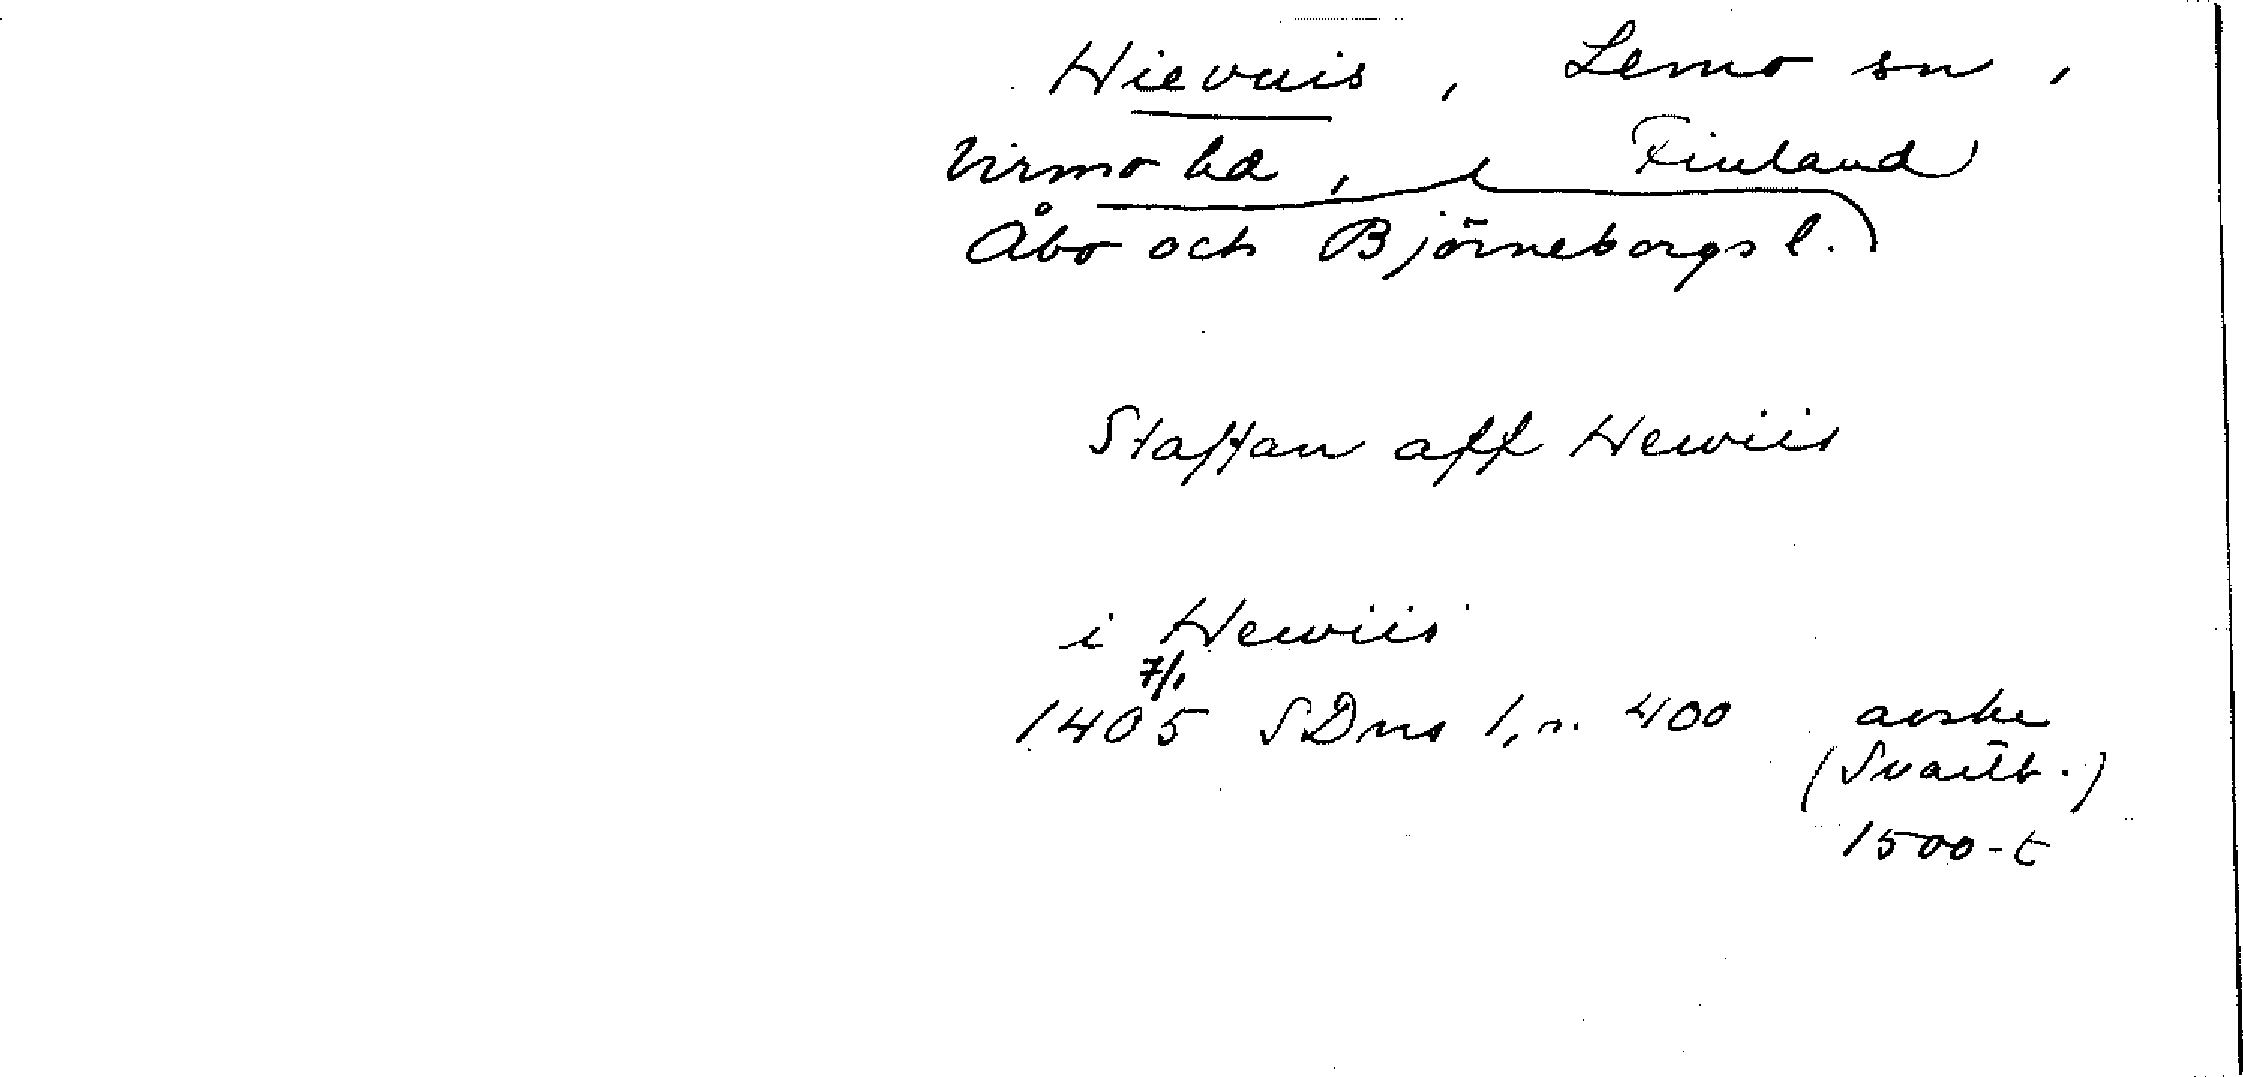 Hievais, Lemo sn,
Virmo hd, Finland
Åbo och Björneborgs l.
Staffan aff Hewiis
i Hewiis
7/1
1405 SDns 1, n. 400 avskr
(Svartb.)
1500-t